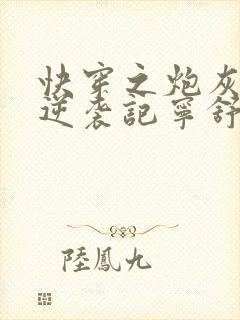 快穿之炮灰
逆袭記寧舒
陸鳳九